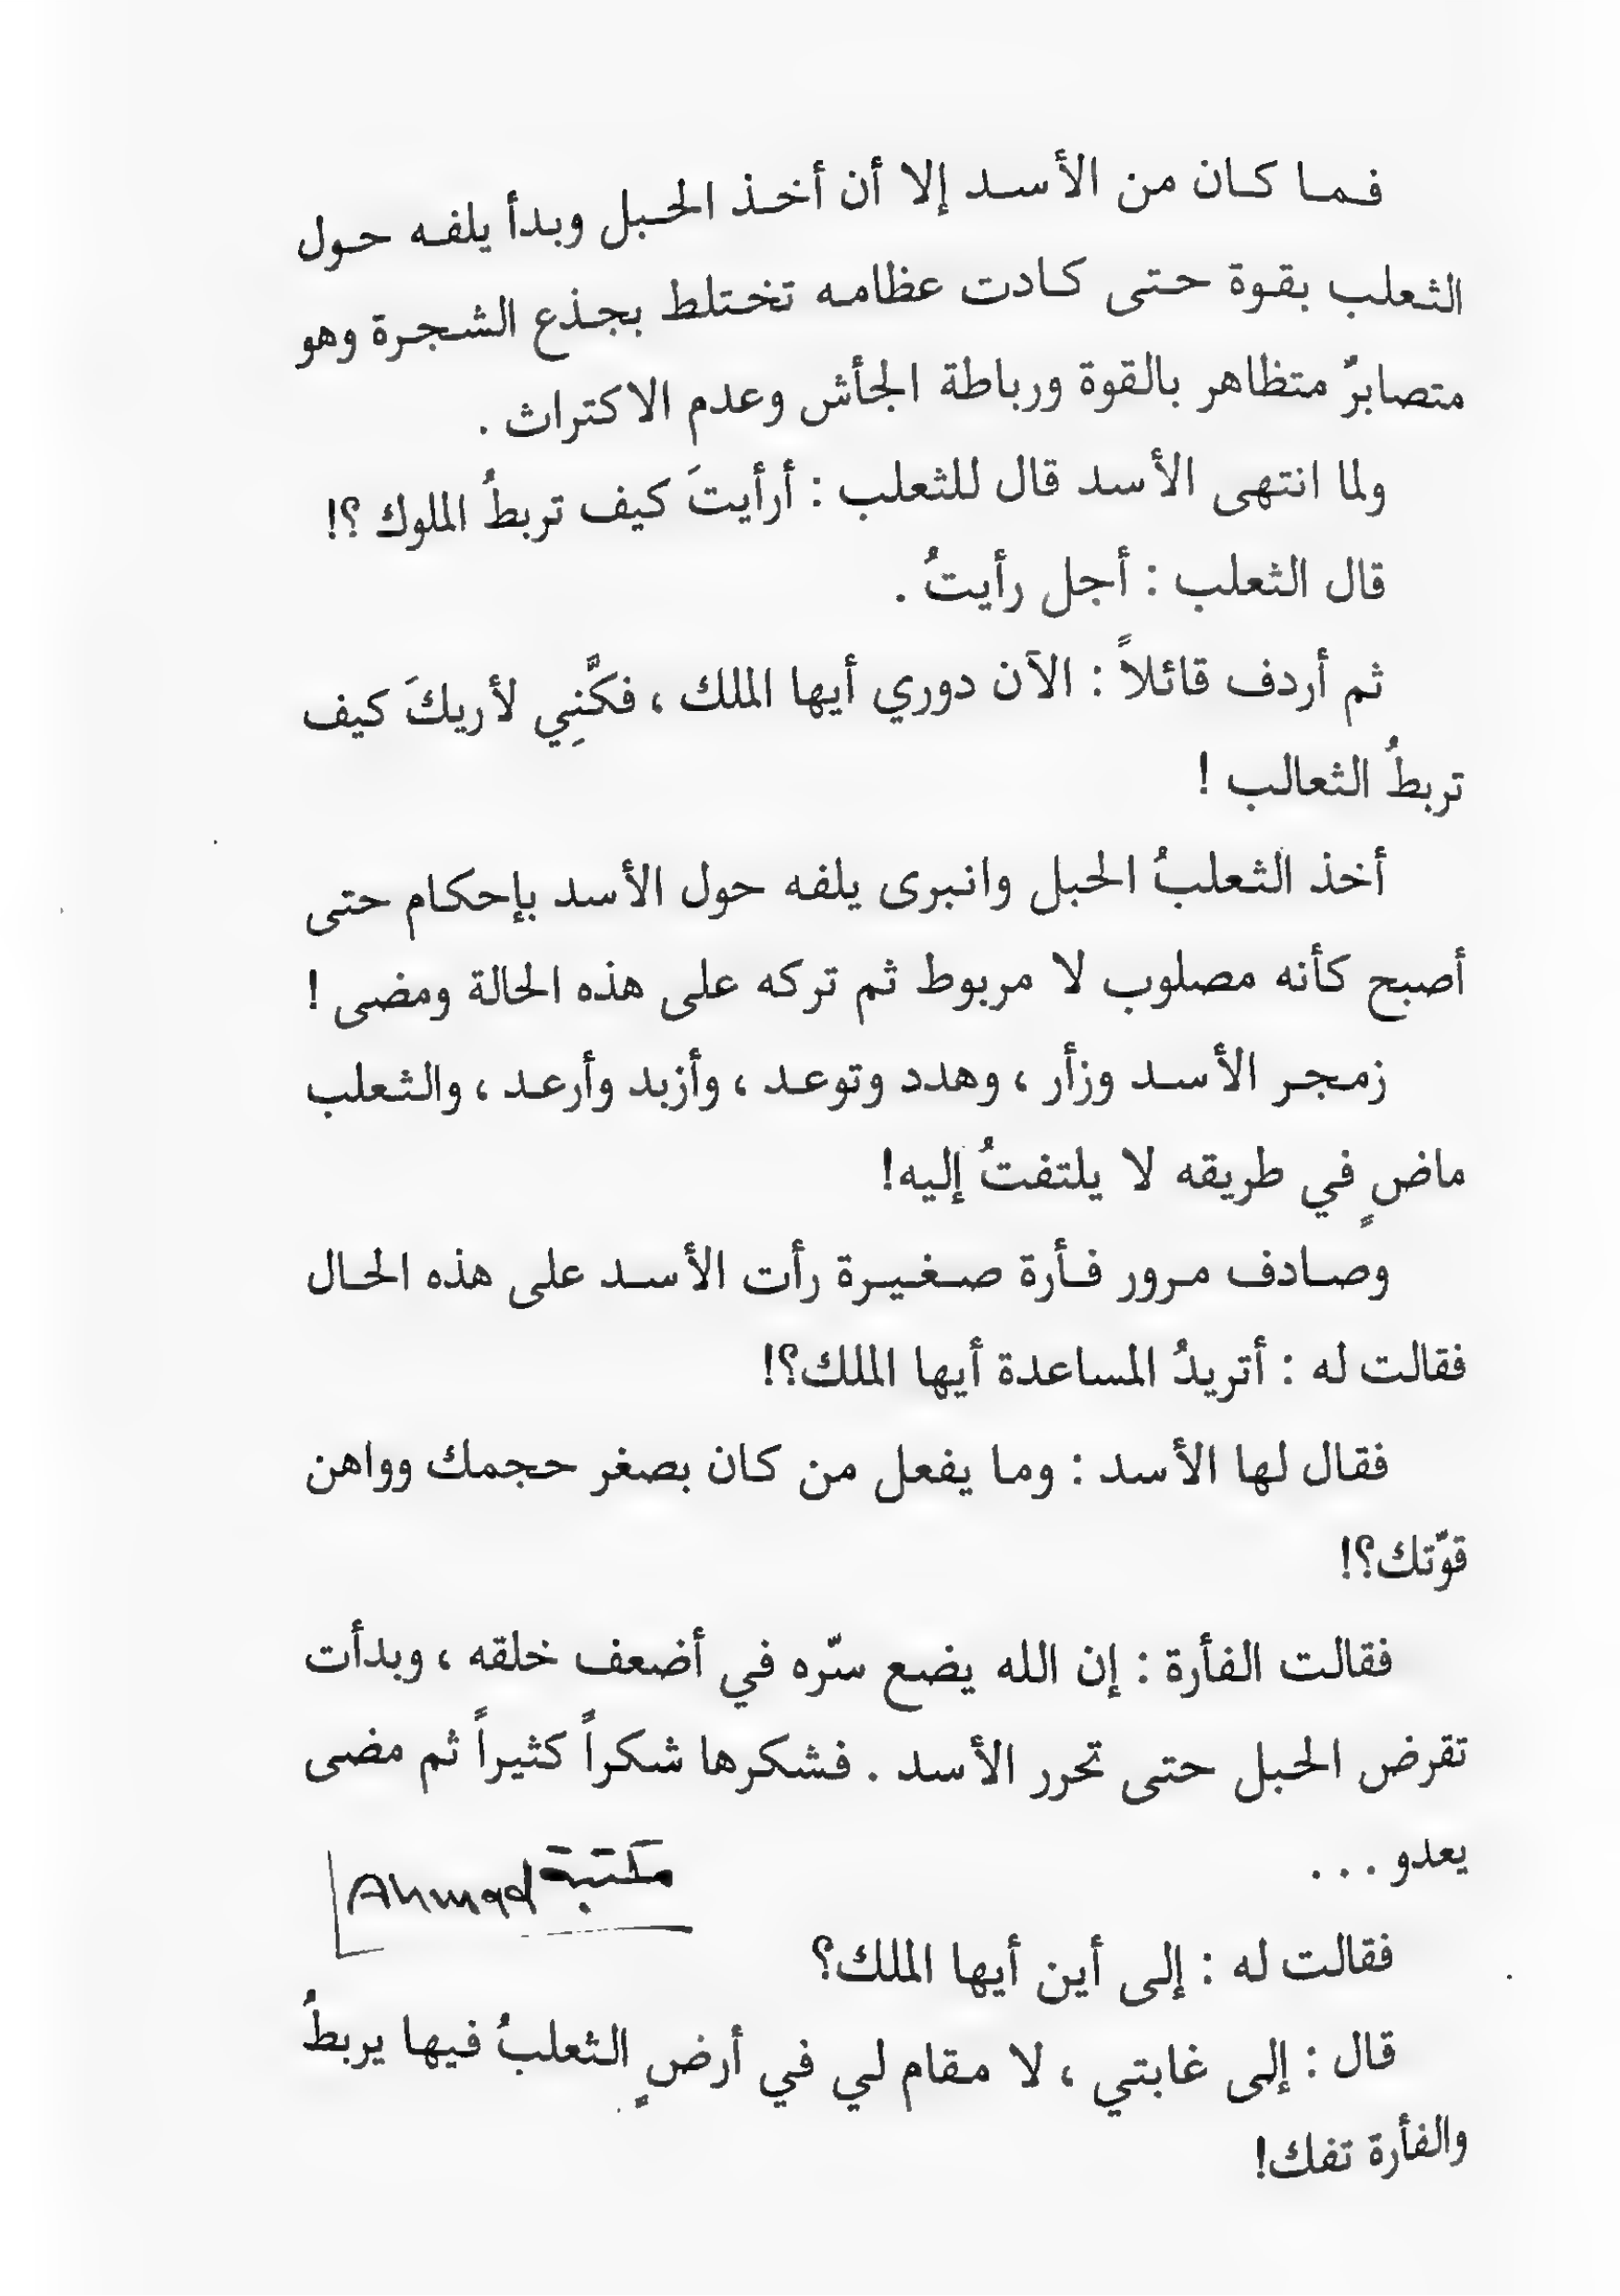 فما كان من الأسد إلا أن أخذ الحبل وبدأ يلفه حول
الثعلب بقوة حتى كادت عظامه تختلط بجذع الشجرة وهو
متصابرٌ متظاهر بالقوة ورباطة الجأش وعدم الاكتراث .
ولما انتهى الأسد قال للثعلب : أرأيتَ كيف تربطُ الملوك ؟!
قال الثعلب : أجل رأيتُ .
ثم أردف قائلاً : الآن دوري أيها الملك ، فكَّنِي لأريكَ كيف
تربطُ الثعالب !
أخذ الثعلبُ الحبل وانبرى يلفه حول الأسد بإحكام حتى
أصبح كأنه مصلوب لا مربوط ثم تركه على هذه الحالة ومضى !
زمجر الأسد وزأر ، وهدد وتوعد ، وأزبد وأرعد ، والثعلب
ماضٍ في طريقه لا يلتفتُ إليه!
وصادف مرور فأرة صغيرة رأت الأسد على هذه الحال
فقالت له : أتريدُ المساعدة أيها الملك؟!
فقال لها الأسد : وما يفعل من كان بصغر حجمك وواهن
قوّتك؟!
فقالت الفأرة : إن الله يضع سّره في أضعف خلقه ، وبدأت
تقرض الحبل حتى تحرر الأسد . فشكرها شكراً كثيراً ثم مضى
يعدو . . .
مكتبة Ahmad
فقالت له : إلى أين أيها الملك؟
قال : إلى غابتي ، لا مقام لي في أرضٍ الثعلبُ فيها يربطُ
والفأرة تفك!